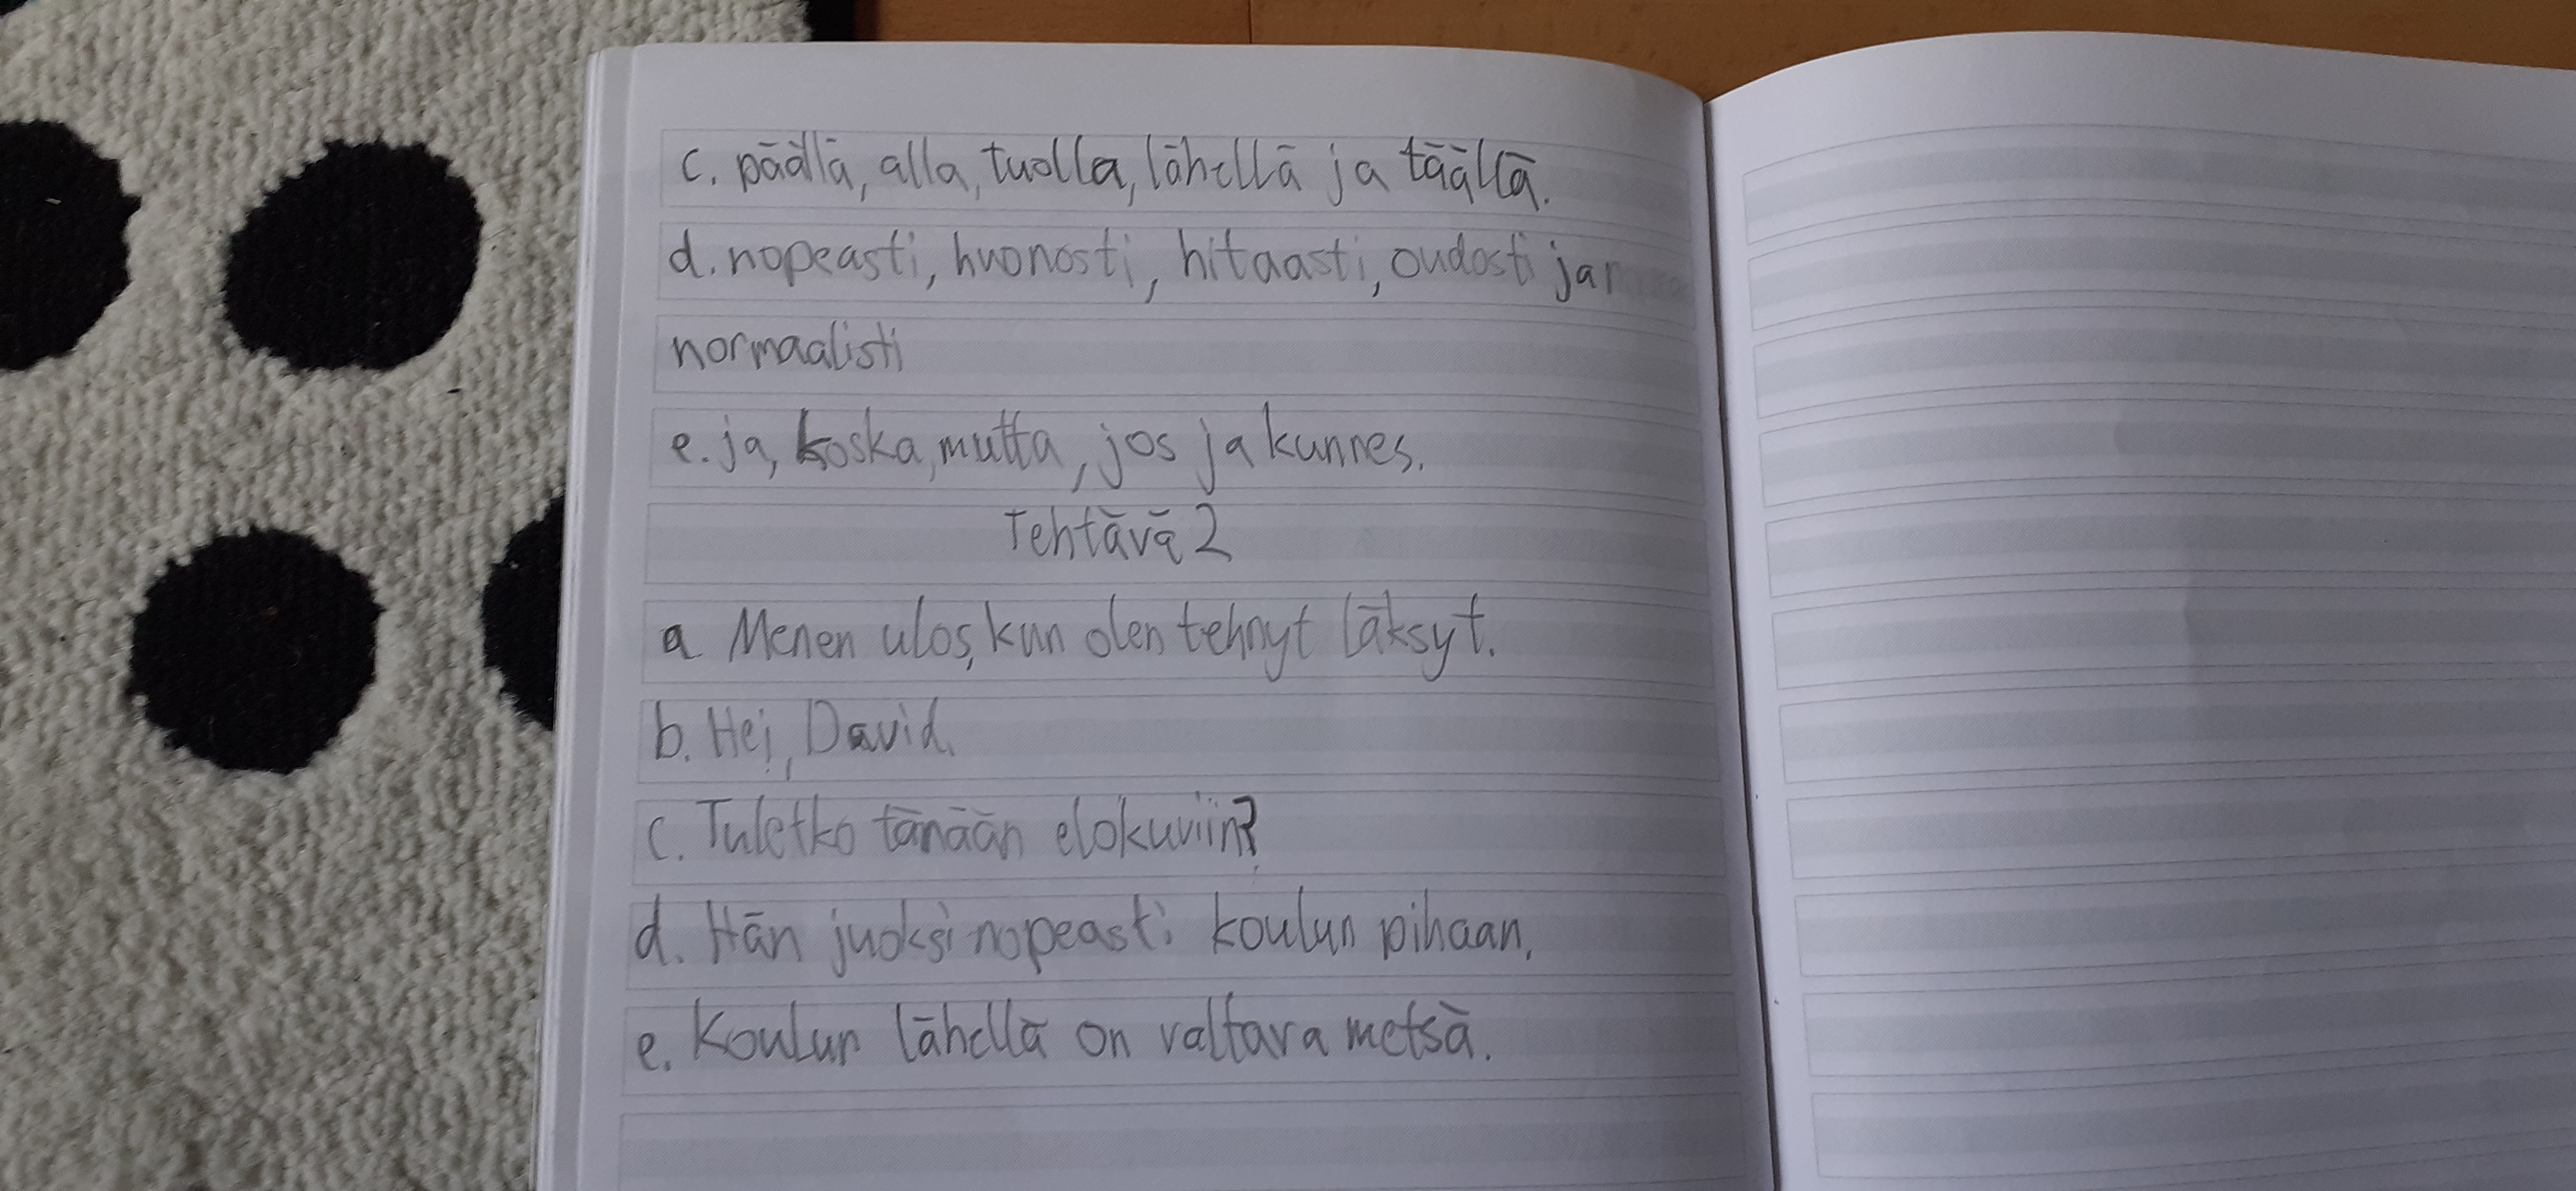 c. päällä, alla, tuolla, lähellä ja täällä.
d. nopeasti, huonosti, hitaasti, oudosti ja
normaalisti
e. ja, koska, mutta, jos ja kunnes.
Tehtävä 2
a Menen ulos, kun olen tehnyt läksyt.
b. Hei, David.
c. Tuletko tänään elokuviin?
d. Hän juoksi nopeasti koulun pihaan.
e. Koulun lähellä on valtava metsä.